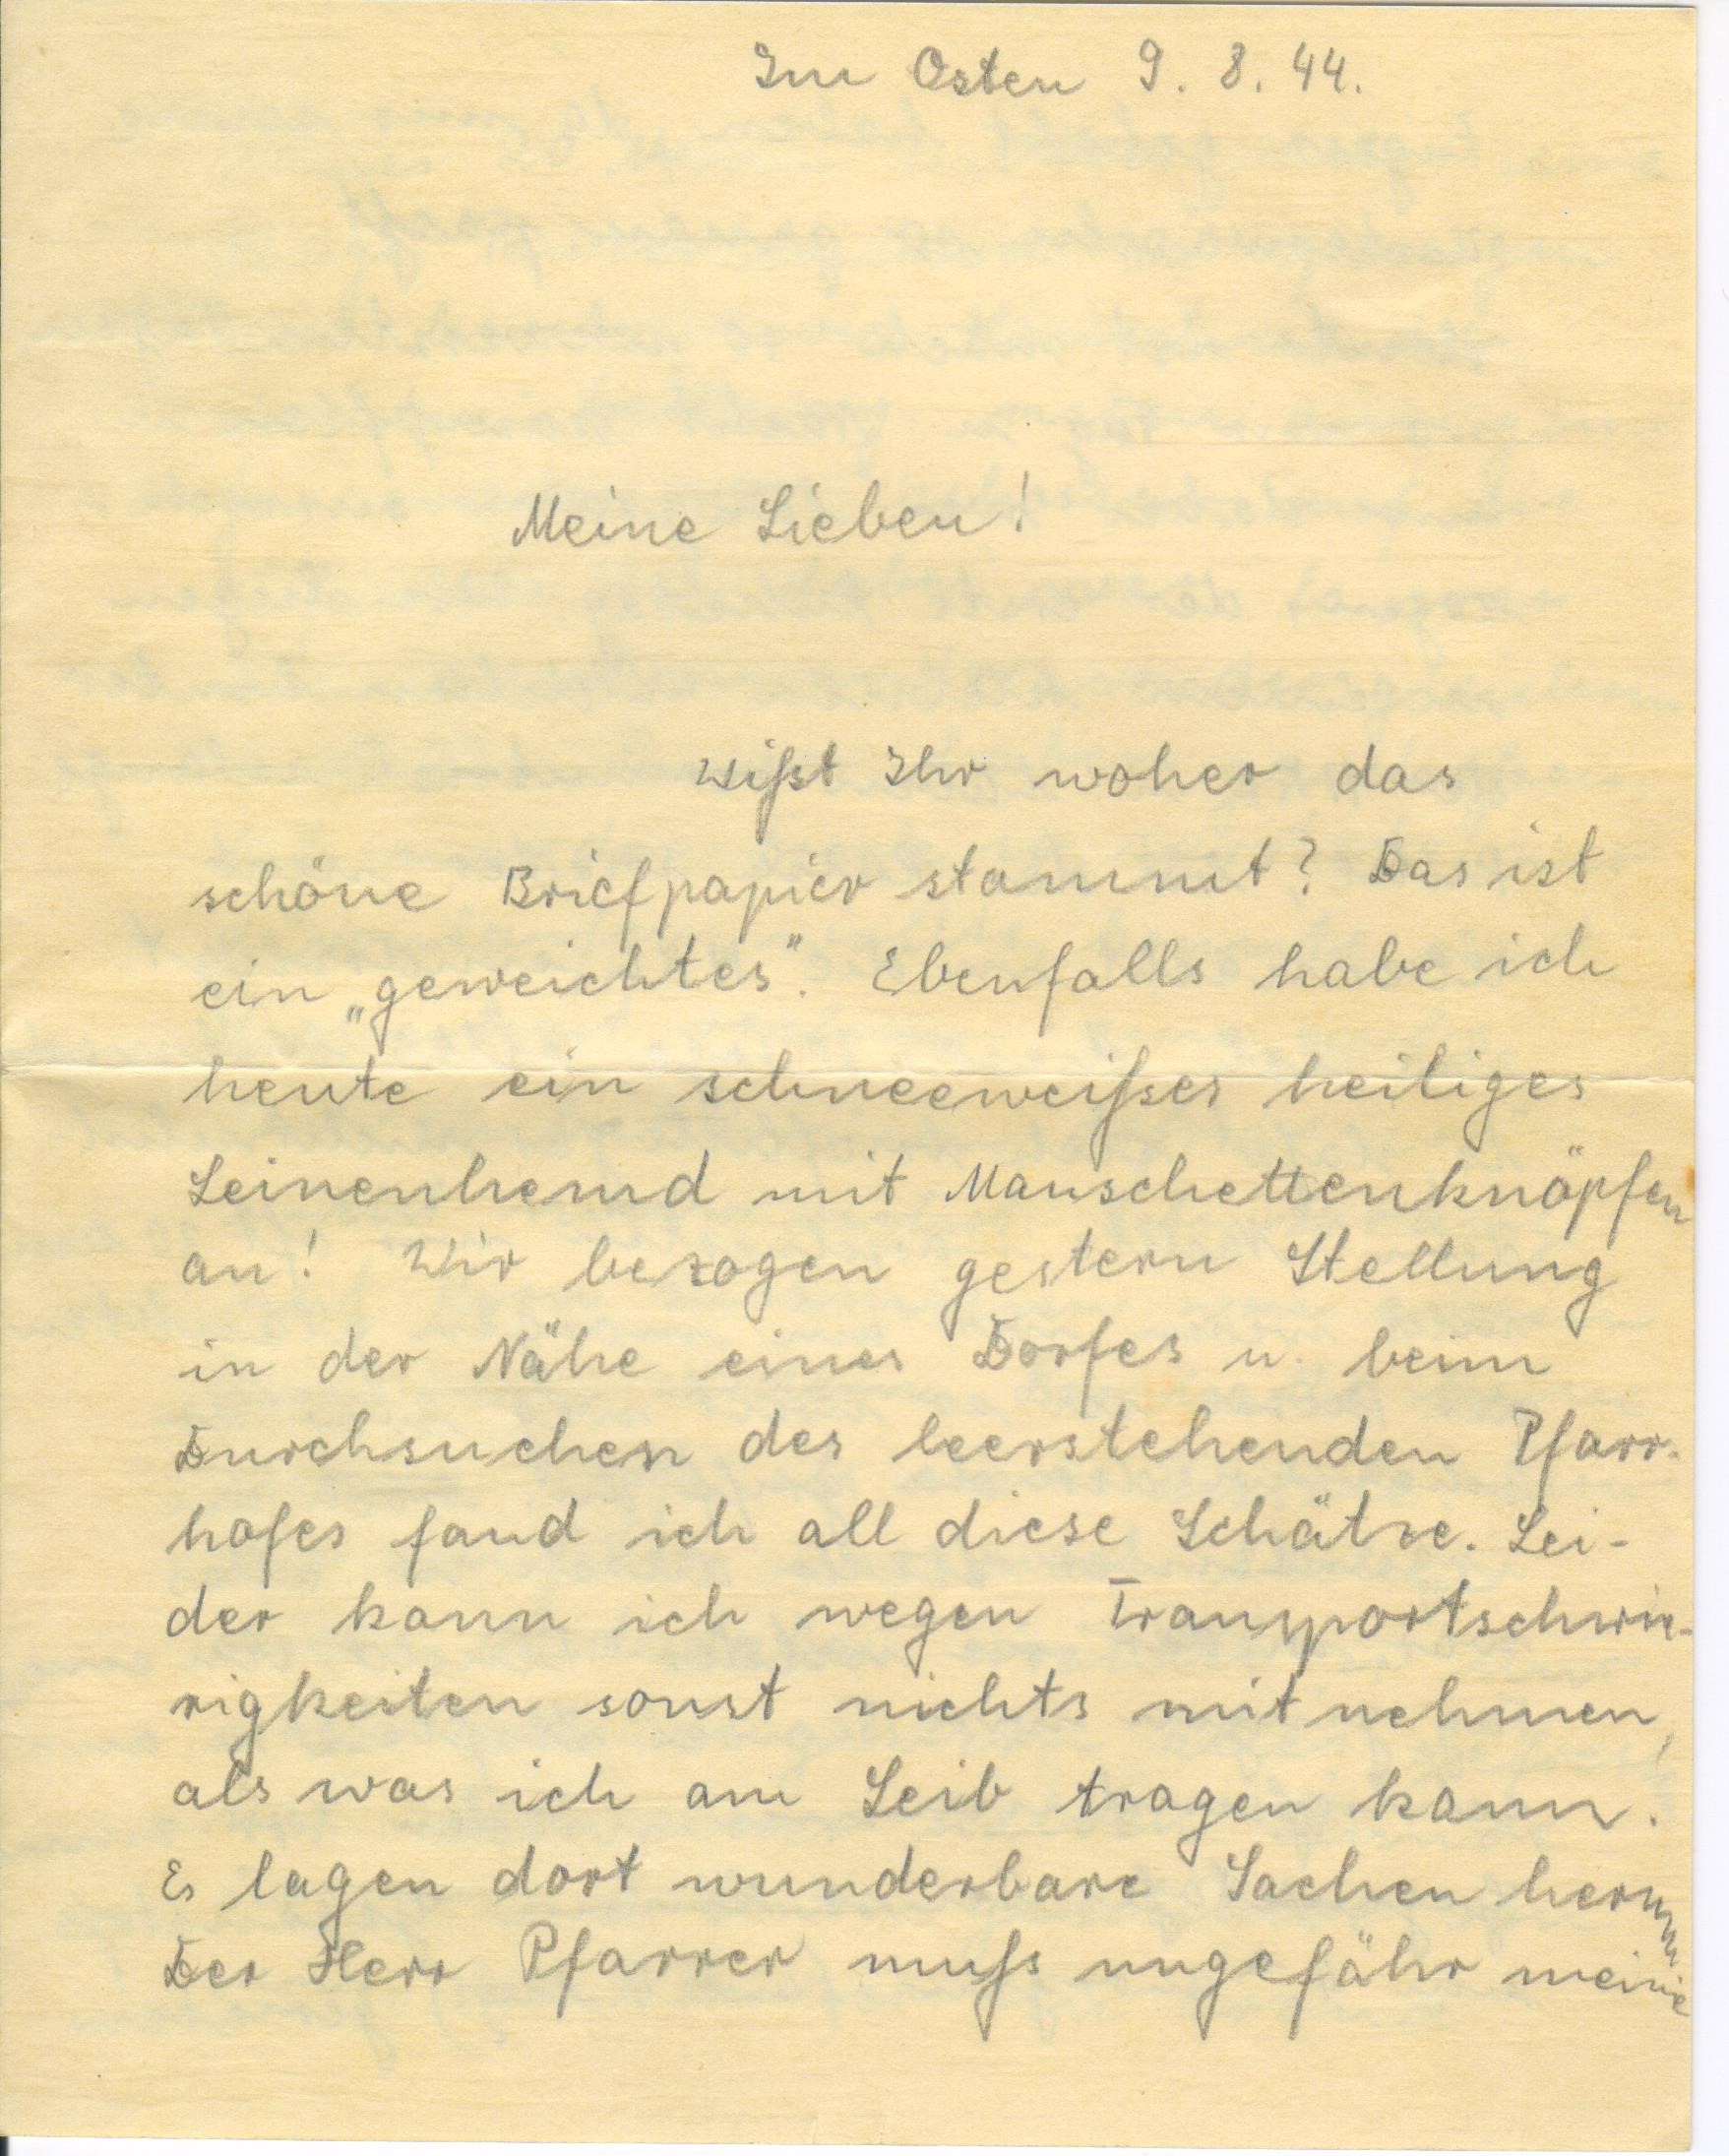 Im Osten 9. 8. 44.
Meine Lieben!
Wißt Ihr woher das
schöne Briefpapier stammt? Das ist
ein „geweichtes". Ebenfalls habe ich
heute ein schneeweißes heiliges
Leinenhemd mit Manschettenknöpfen
an! Wir bezogen gestern Stellung
in der Nähe eines Dorfes u. beim
Durchsuchen des leerstehenden Pfarr-
hofes fand ich all diese Schätze. Lei-
der kann ich wegen Transportschwie-
rigkeiten sonst nichts mitnehmen,
als was ich am Leib tragen kann.
Es lagen dort wunderbare Sachen herum
Der Herr Pfarrer muß ungefähr meine